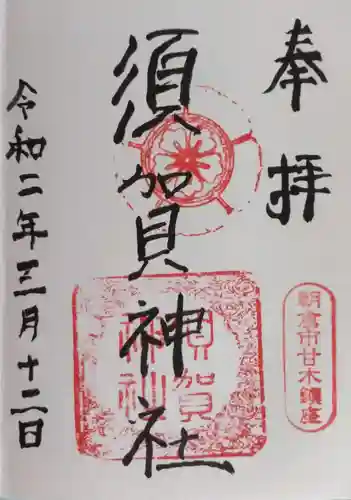 奉拝
朝倉市甘木鎮座
須賀神社
須賀神社
令和二年三月十二日